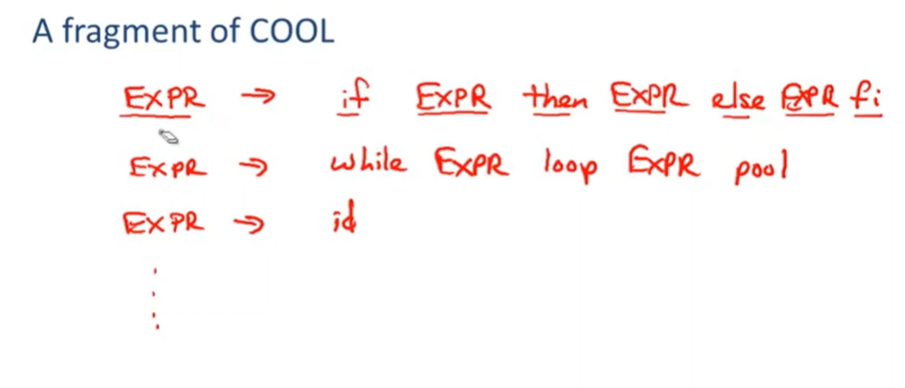 A fragment of COOL
EXPR → if EXPR then EXPR else EXPR fi
EXPR → while EXPR loop EXPR pool
EXPR → id